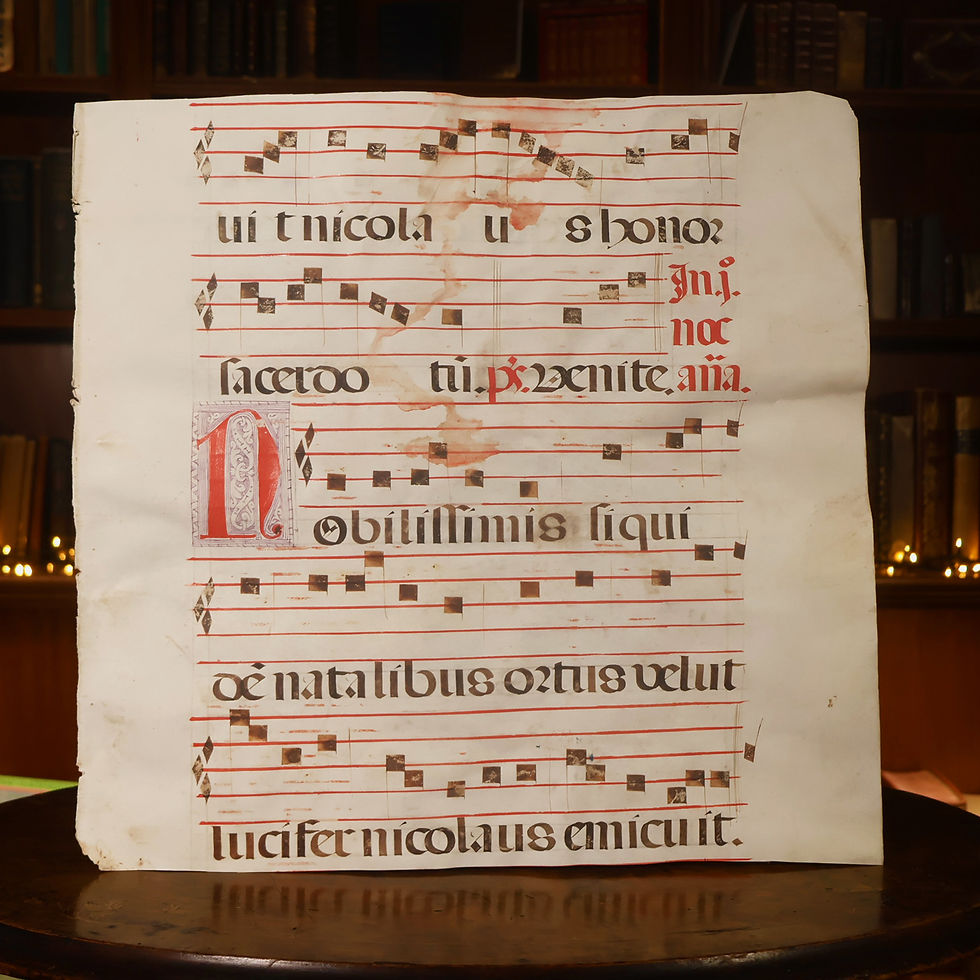 ui t nicola u s honor
In .j.
noc
sacerdo tū. p̄s. venite. aña.
Nobilissimis siqui
dē natalibus ortus velut
lucifer nicolaus emicuit.